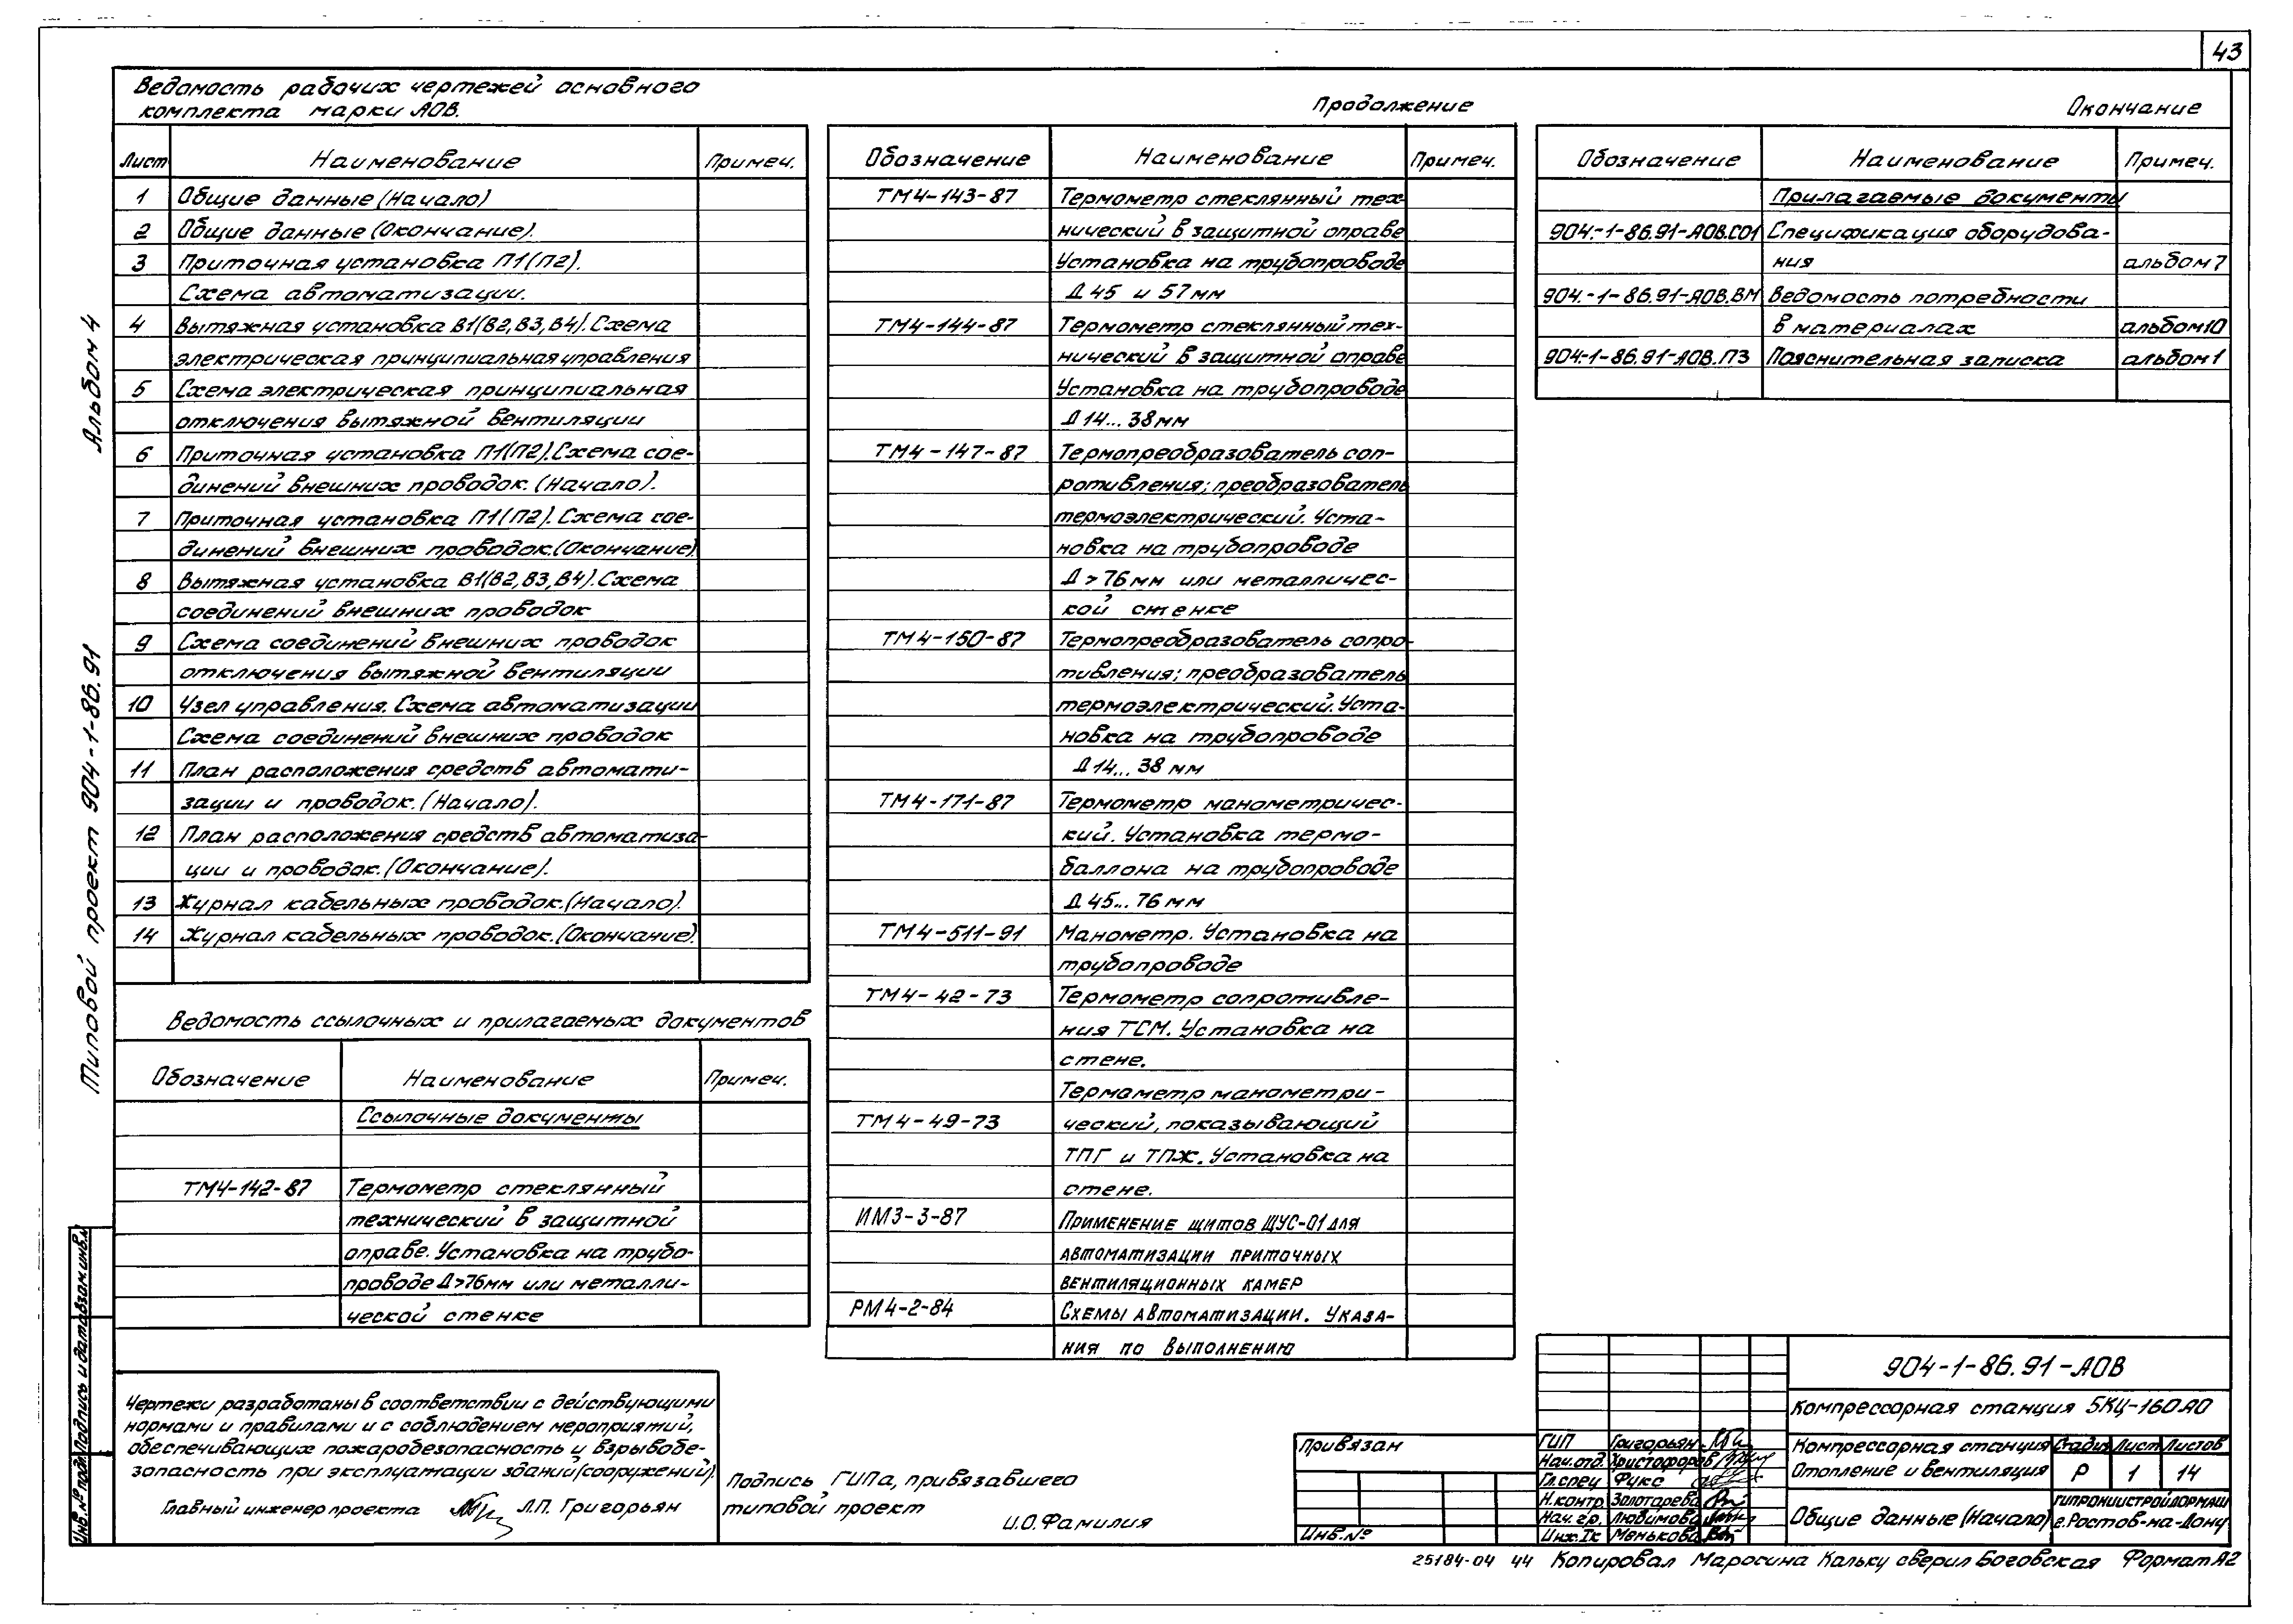 43
Ведомость рабочих чертежей основного
комплекта марки АОВ.
Лист Наименование Примеч.
1 Общие данные (Начало)
2 Общие данные (Окончание).
3 Приточная установка П1(П2).
Схема автоматизации.
4 Вытяжная установка В1(В2,В3,В4). Схема
электрическая принципиальная управления
5 Схема электрическая принципиальная
отключения вытяжной вентиляции
6 Приточная установка П1(П2). Схема сое-
динений внешних проводок. (Начало).
7 Приточная установка П1(П2). Схема сое-
динений внешних проводок. (Окончание).
8 Вытяжная установка В1(В2,В3,В4). Схема
соединений внешних проводок
9 Схема соединений внешних проводок
отключения вытяжной вентиляции
10 Узел управления. Схема автоматизации
Схема соединений внешних проводок
11 План расположения средств автомати-
зации и проводок. (Начало).
12 План расположения средств автоматиза-
ции и проводок. (Окончание).
13 Журнал кабельных проводок. (Начало).
14 Журнал кабельных проводок. (Окончание).
Ведомость ссылочных и прилагаемых документов
Обозначение Наименование Примеч.
Ссылочные документы
ТМ4-142-87 Термометр стеклянный
технический в защитной
оправе. Установка на трубо-
проводе Д>76мм или металли-
ческой стенке
Продолжение
Обозначение Наименование Примеч.
ТМ4-143-87 Термометр стеклянный тех-
нический в защитной оправе
Установка на трубопроводе
Д 45 и 57мм
ТМ4-144-87 Термометр стеклянный тех-
нический в защитной оправе
Установка на трубопроводе
Д 14... 38мм
ТМ4-147-87 Термопреобразователь соп-
ротивления; преобразователь
термоэлектрический. Уста-
новка на трубопроводе
Д > 76 мм или металличес-
кой стенке
ТМ4-150-87 Термопреобразователь сопро-
тивления; преобразователь
термоэлектрический. Уста-
новка на трубопроводе
Д 14... 38 мм
ТМ4-171-87 Термометр манометричес-
кий. Установка термо-
баллона на трубопроводе
Д 45... 76 мм
ТМ4-511-91 Манометр. Установка на
трубопроводе
ТМ4-42-73 Термометр сопротивле-
ния ТСМ. Установка на
стене.
Термометр манометри-
ТМ4-49-73 ческий, показывающий
ТПГ и ТПЖ. Установка на
стене.
ИМ3-3-87 Применение щитов ЩУС-01 для
автоматизации приточных
вентиляционных камер
РМ4-2-84 Схемы автоматизации. Указа-
ния по выполнению
Окончание
Обозначение Наименование Примеч.
Прилагаемые документы
904.-1-86.91-АОВ.СО1 Спецификация оборудова-
ния альбом 7
904.-1-86.91-АОВ.ВМ Ведомость потребности
в материалах альбом 10
904-1-86.91-АОВ.ПЗ Пояснительная записка альбом 1
Альбом 4
Типовой проект 904-1-86.91
Инв.№ подл. Подпись и дата Взам.инв.№
Чертежи разработаны в соответствии с действующими
нормами и правилами и с соблюдением мероприятий,
обеспечивающих пожаробезопасность и взрывобе-
зопасность при эксплуатации зданий (сооружений).
Главный инженер проекта Л.П. Григорьян
Подпись ГИПа, привязавшего
типовой проект
И.О.Фамилия
Привязан
Инв.№
ГИП Григорьян
Нач.отд. Христофоров
Гл.спец Фукс
Н.контр. Золотарева
Нач.гр. Любимова
Инж.Iк Менькова
904-1-86.91-АОВ
Компрессорная станция 5КЦ-160А0
Компрессорная станция
Отопление и вентиляция
Стадия Лист Листов
Р 1 14
Общие данные (Начало)
ГИПРОНИИСТРОЙДОРМАШ
г.Ростов-на-Дону
25184-04 44 Копировал Маросина Кальку сверил Боговская Формат А2